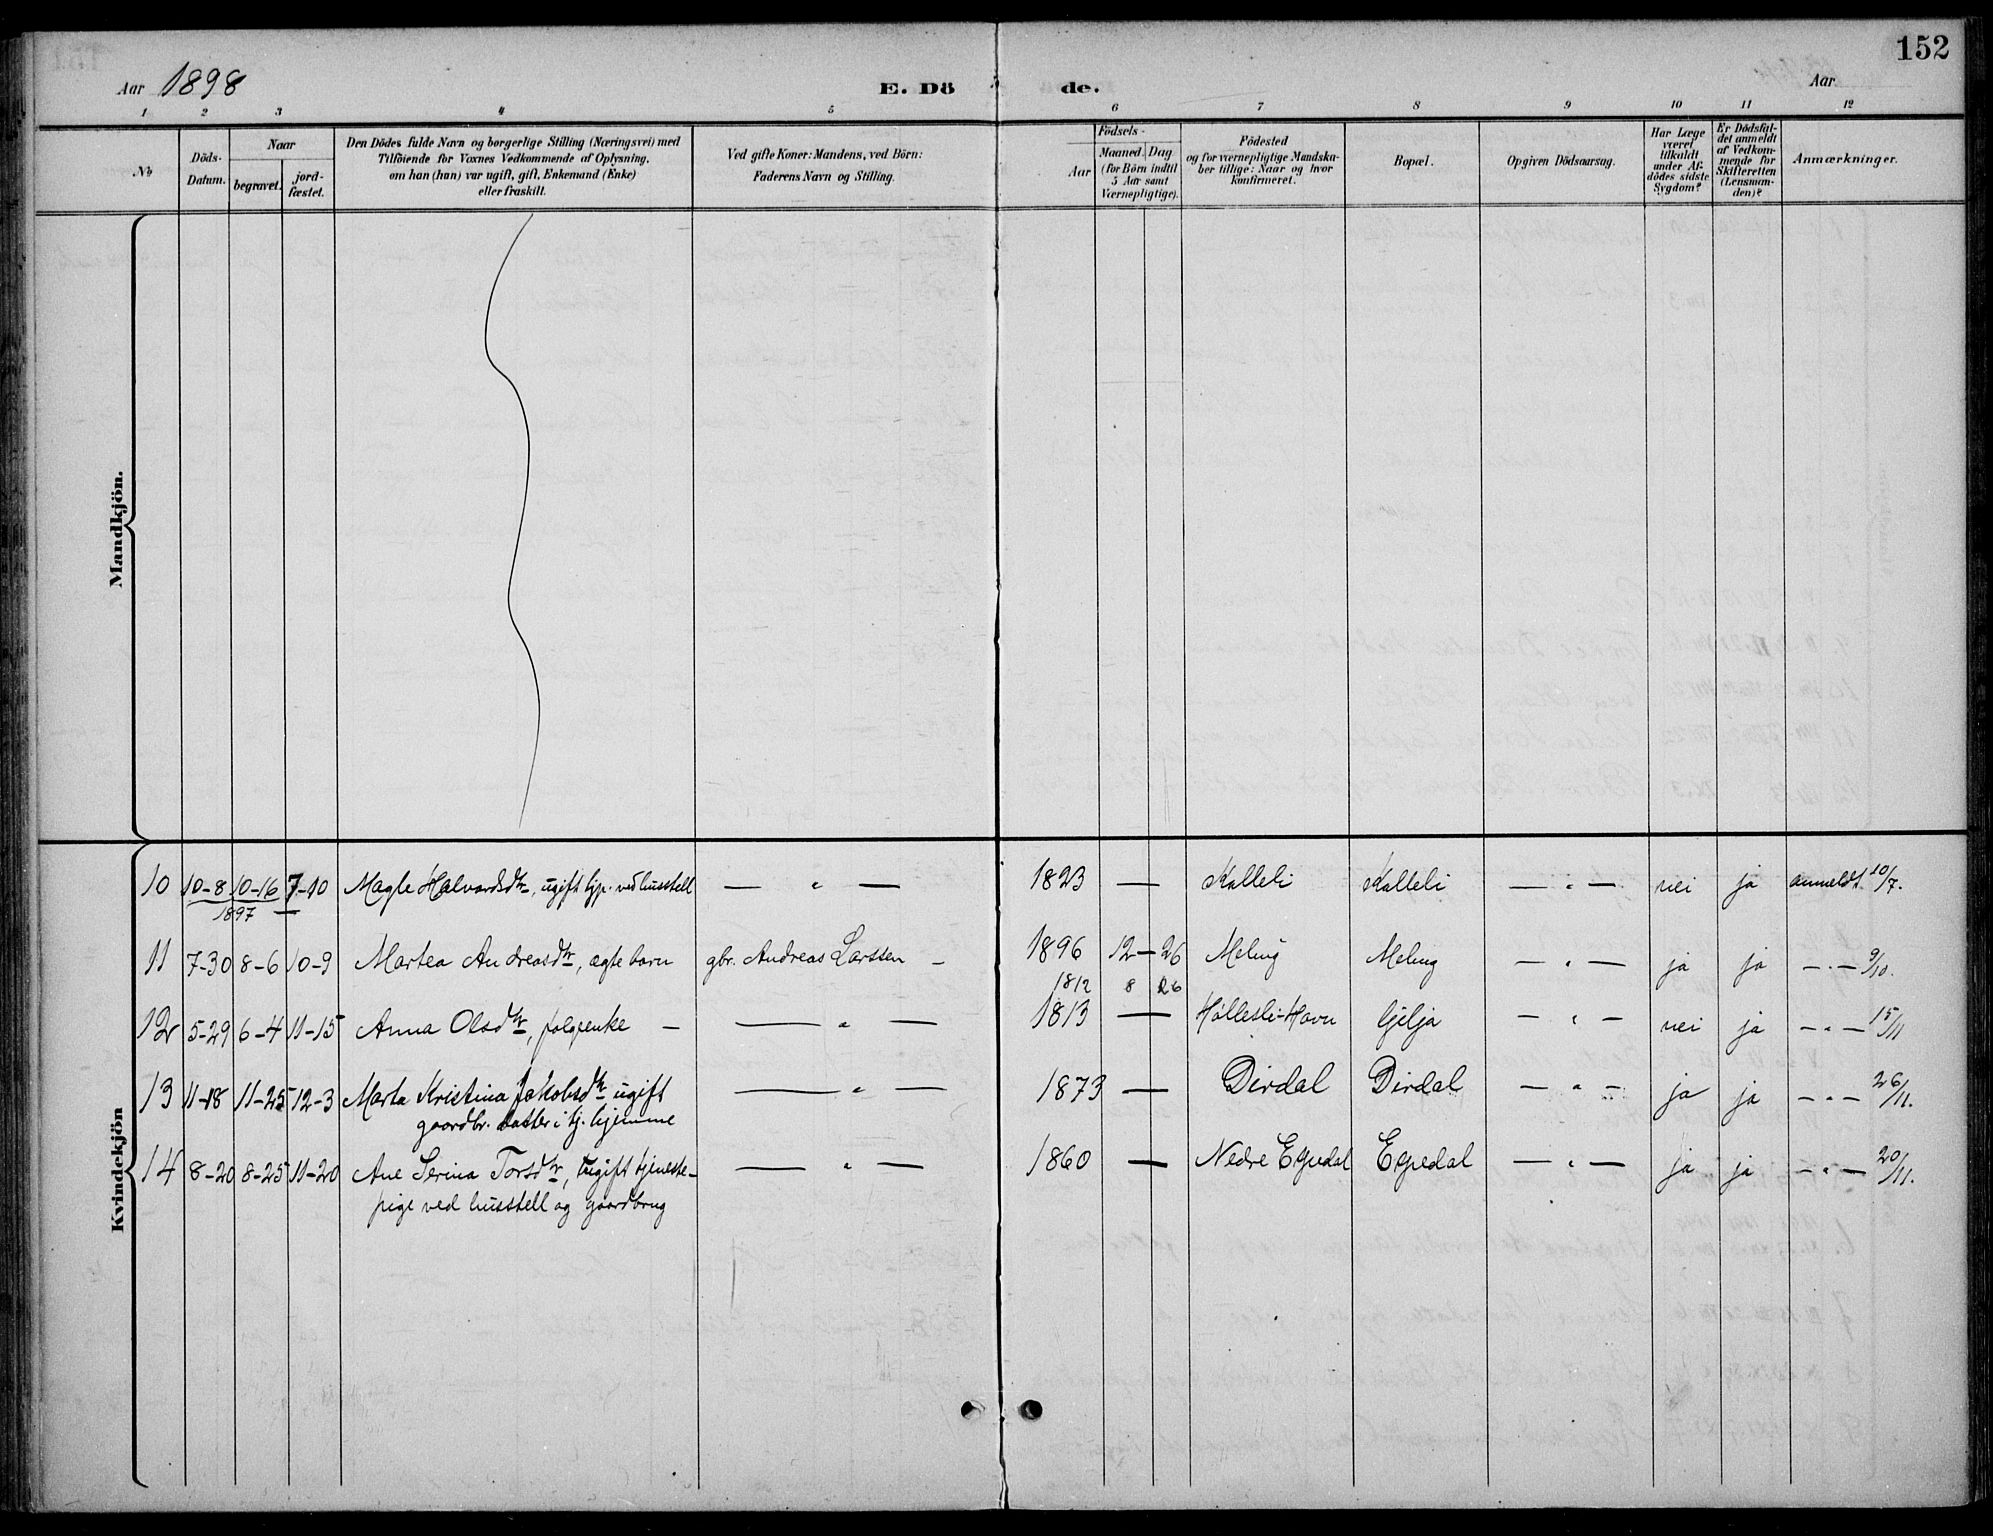 152
Aar 1898
E. Dö de.
Aar
1 2 3 4 5 6 7 8 9 10 11 12
No
Döds-Datum.
Naar
begravet.
jord-fæstet.
Den Dödes fulde Navn og borgerlige Stilling (Næringsvei) med
Tilföiende for Voxnes Vedkommende af Oplysning,
om han (hun) var ugift, gift, Enkemand (Enke)
eller fraskilt.
Ved gifte Koner: Mandens, ved Börn:
Faderens Navn og Stilling.
Födsels-
Aar
Maaned. Dag
(for Börn indtil
5 Aar samt
Værnepligtige).
Födested
og for værnepligtige Mandska-
ber tillige: Naar og hvor
konfirmeret.
Bopæl.
Opgiven Dödsaarsag.
Har Læge
været
tilkaldt
under Af-
dödes sidste
Sygdom?
Er Dödsfal-
det anmeldt
af Vedkom-
mende for
Skifteretten
(Lensman-
den)?
Anmærkninger.
Mandkjön.
Kvindekjön
10 10-8 10-16 7-10 Magle Halvardsdtr, ugift tjp. ved husstell — " — 1823 — Kalleli Kalleli — " — nei ja anmeldt 10/7.
1897
11 7-30 8-6 10-9 Martea Andreasdtr, ægte barn gbr. Andreas Larssen — 1896 12—26 Meling Meling — " — ja ja — " — 9/10.
1812 8 26
12 5-29 6-4 11-15 Anna Olsdtr, folgeenke — — " — 1813 — Hølleslí-Havn Gjelja — " — nei ja — " — 15/11
13 11-18 11-25 12-3 Marta Kristina Jakobsdtr ugift — " — 1873 — Dirdal Dirdal — " — ja ja — " — 26/11.
gaardbr. datter i tj. hjemme
14 8-20 8-25 11-20 Ane Serina Torsdtr, ugift tjeneste- — " — 1860 — Nedre Espedal Espedal — " — ja ja — " — 20/11.
pige ved husstell og gaardbrug